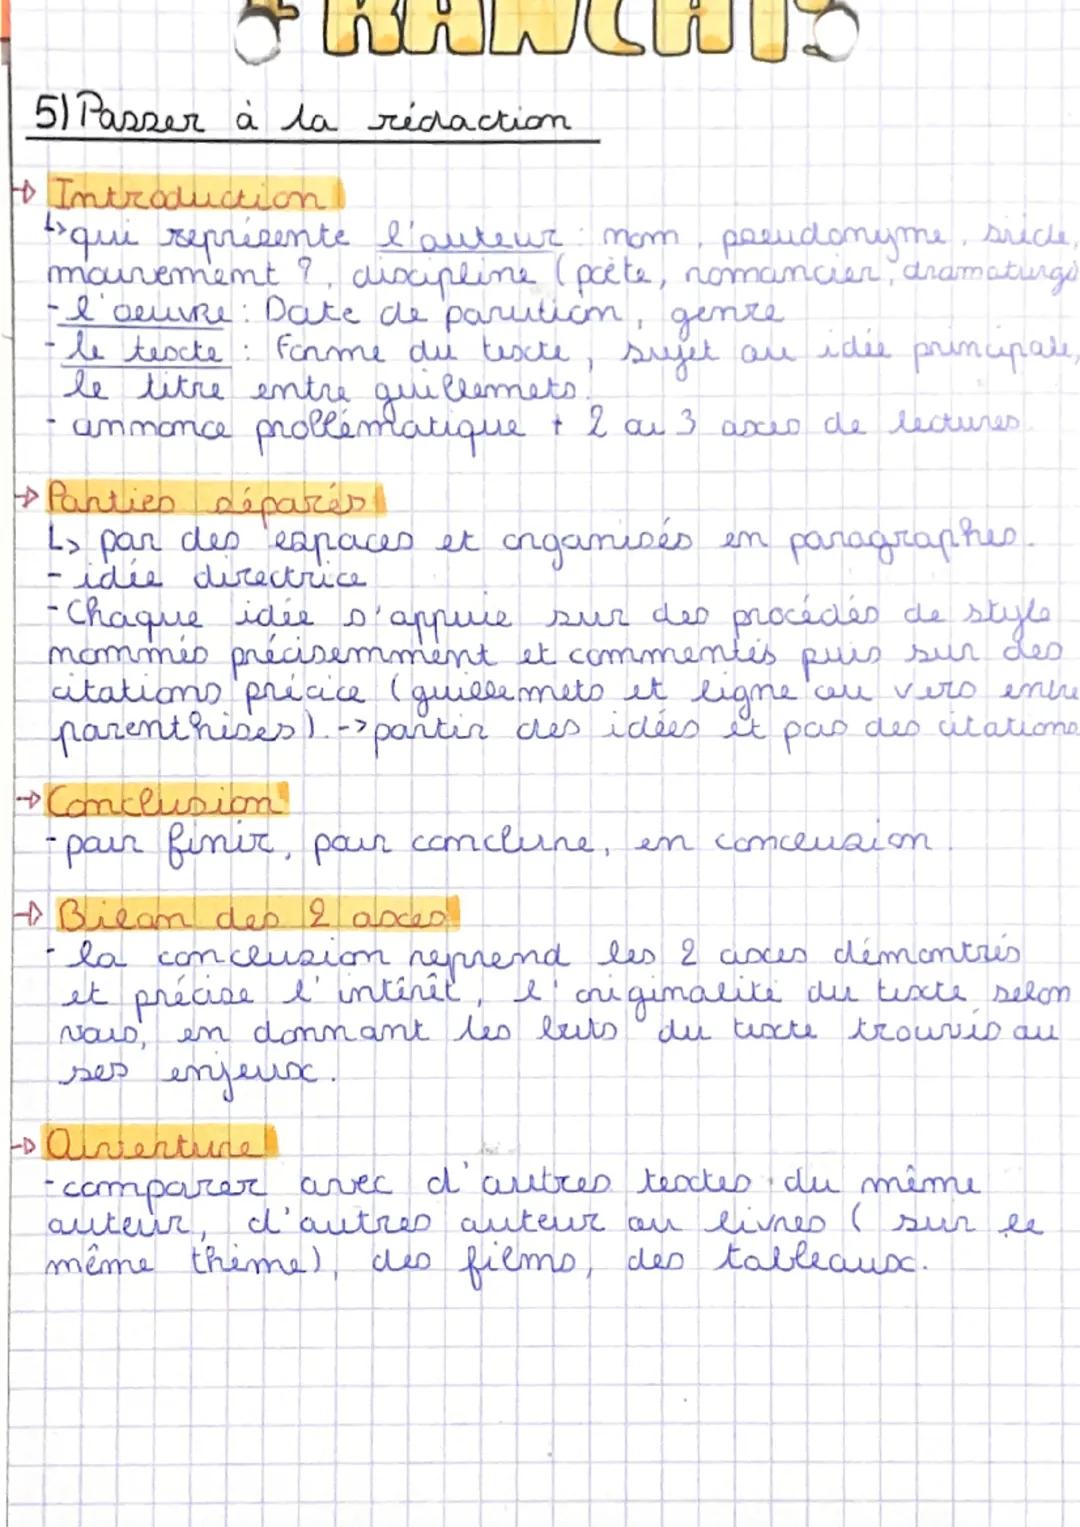 FRANÇAIS
5) Passer à la rédaction
→ Introduction
↳ qui représente l'auteur : nom, pseudonyme, siècle,
mouvement ?, discipline (poète, romancier, dramaturge
- l'oeuvre : Date de parution, genre
- le texte : Forme du texte, sujet ou idée principale,
le titre entre guillemets.
- annonce problématique + 2 ou 3 axes de lectures.
→ Parties séparés
↳ par des espaces et organisés en paragraphes.
- idée directrice
- Chaque idée s'appuie sur des procédés de style
nommés précisemment et commentés puis sur des
citations précice (guillemets et ligne ou vers entre
parenthèses). -> partir des idées et pas des citations
→ Conclusion
- pour finir, pour conclure, en conclusion.
→ Bilan des 2 axes
- la conclusion reprend les 2 axes démontrés
et précise l'intérêt, l'originalité du texte selon
vous, en donnant les buts du texte trouvés ou
ses enjeux.
→ Ouverture
- comparer avec d'autres textes du même
auteur, d'autres auteur ou livres (sur le
même thème), des films, des tableaux.